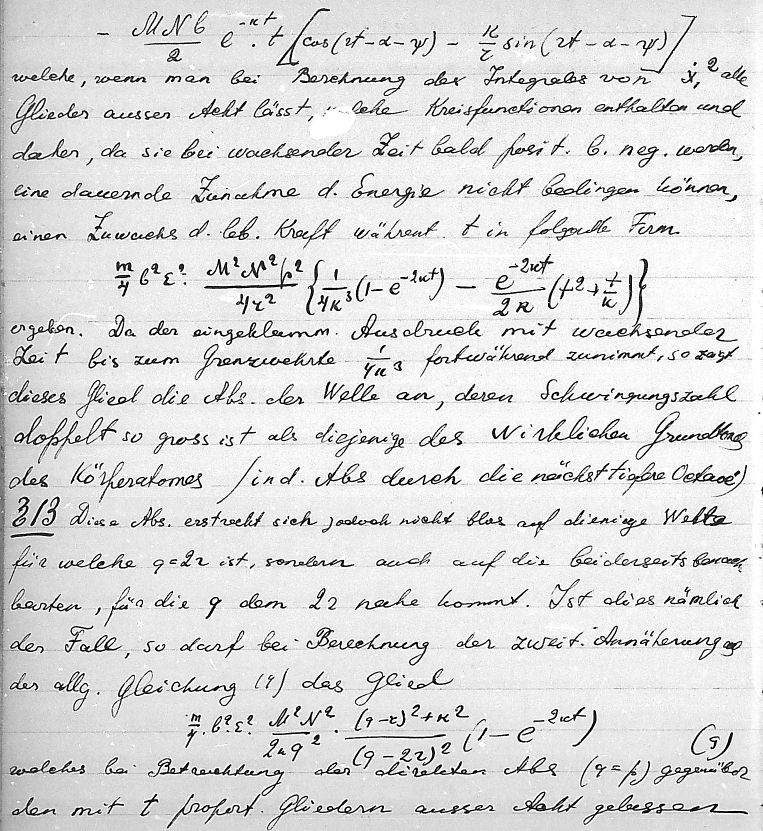 - MNb/2 e^-κt . t [cos(rt-α-ψ) - κ/r sin(rt-α-ψ)]
welche, wenn man bei Berechnung des Integrales von ẋ,² alle
Glieder ausser Acht lässt, welche Kreisfunctionen enthalten und
daher, da sie bei wachsender Zeit bald posit. b. neg. werden,
eine dauernde Zunahme d. Energie nicht bedingen können,
einen Zuwachs d. leb. Kraft während t in folgender Form
m/4 b²ε². M²N²p²/4r² {1/4κ³(1-e^-2κt) - e^-2κt/2κ (t²+t/κ)}
ergeben. Da der eingeklamm. Ausdruck mit wachsender
Zeit bis zum Grenzwehrte 1/4κ³ fortwährend zunimmt, so zeigt
dieses Glied die Abs. der Welle an, deren Schwingungszahl
doppelt so gross ist als diejenige des wirklichen Grundtones
des Körperatomes (ind. Abs durch die nächst tiefere Octave)
313 Diese Abs. erstreckt sich jedoch nicht blos auf diejenige Welle
für welche q=2r ist, sondern auch auf die beiderseits benach
barten, für die q dem 2r nahe kommt. Ist dies nämlich
der Fall, so darf bei Berechnung der zweit. Annäherung
der allg. Gleichung (9) das Glied
m/4 . b².ε². M²N²/2κq² . (q-r)²+κ²/(q-2r)² (1-e^-2κt) (9)
welches bei Betrachtung der direkten Abs (q=p) gegenüber
den mit t proport. Gliedern ausser Acht gelassen